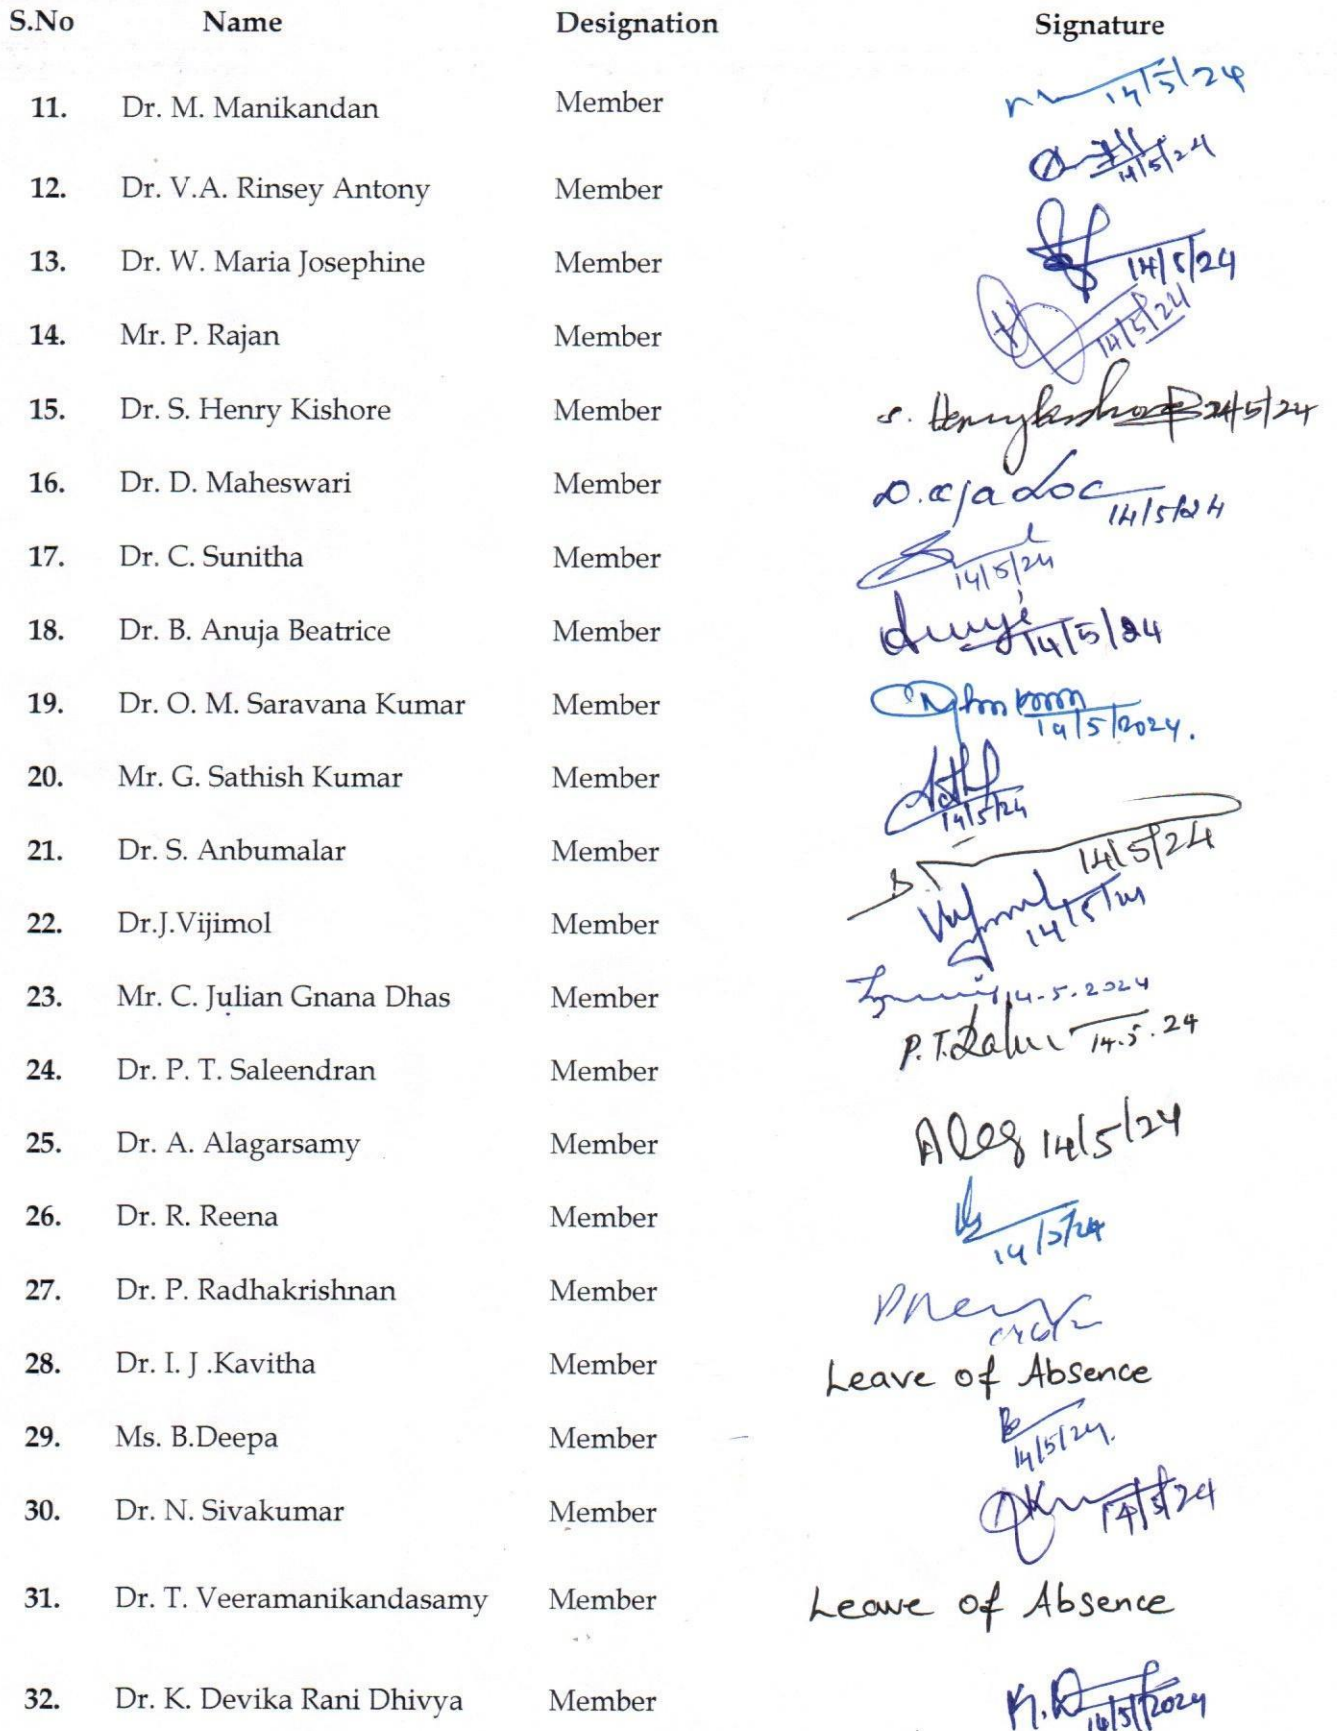 S.No Name Designation Signature
11. Dr. M. Manikandan Member 14/5/24
12. Dr. V.A. Rinsey Antony Member 14/5/24
13. Dr. W. Maria Josephine Member 14/5/24
14. Mr. P. Rajan Member 14/5/24
15. Dr. S. Henry Kishore Member S. Henry Kishore 14/5/24
16. Dr. D. Maheswari Member 14/5/24
17. Dr. C. Sunitha Member 14/5/24
18. Dr. B. Anuja Beatrice Member 14/5/24
19. Dr. O. M. Saravana Kumar Member 14/5/2024.
20. Mr. G. Sathish Kumar Member 14/5/24
21. Dr. S. Anbumalar Member 14/5/24
22. Dr.J.Vijimol Member 14/5/24
23. Mr. C. Julian Gnana Dhas Member 14.5.2024
24. Dr. P. T. Saleendran Member P.T. 14.5.24
25. Dr. A. Alagarsamy Member Alag 14/5/24
26. Dr. R. Reena Member 14/5/24
27. Dr. P. Radhakrishnan Member
28. Dr. I. J .Kavitha Member Leave of Absence
29. Ms. B.Deepa Member 14/5/24.
30. Dr. N. Sivakumar Member 14/5/24
31. Dr. T. Veeramanikandasamy Member Leave of Absence
32. Dr. K. Devika Rani Dhivya Member 14/5/2024